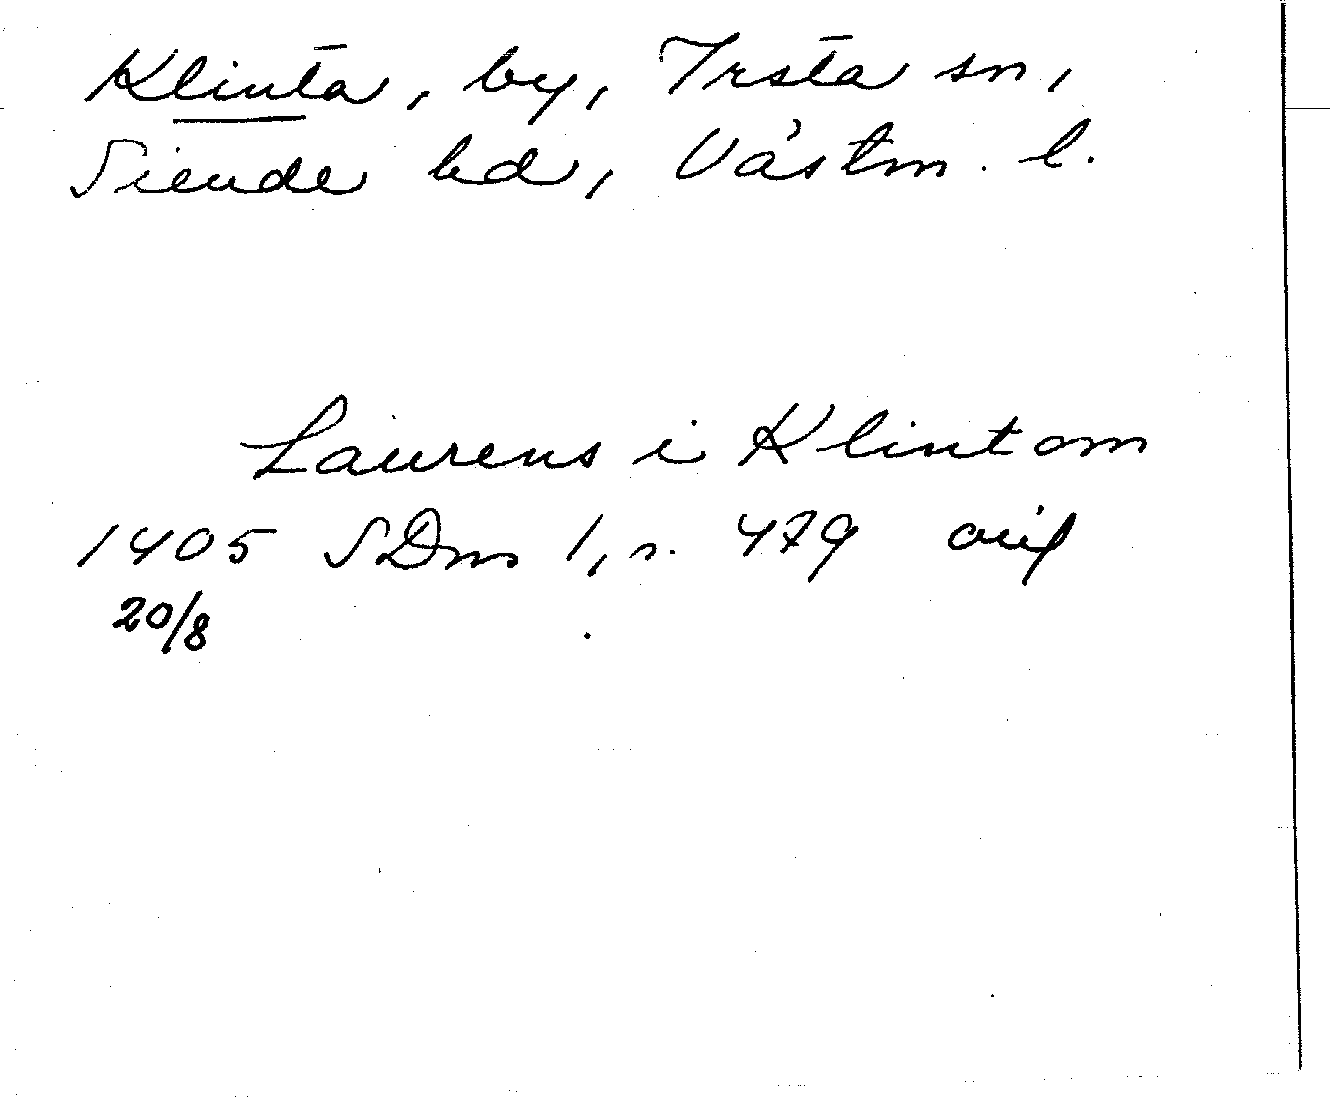 Klinta, by, Irsta sn,
Siende hd, Västm. l.
Laurens i Klintom
1405 SDns 1, s. 479 avig
20/8